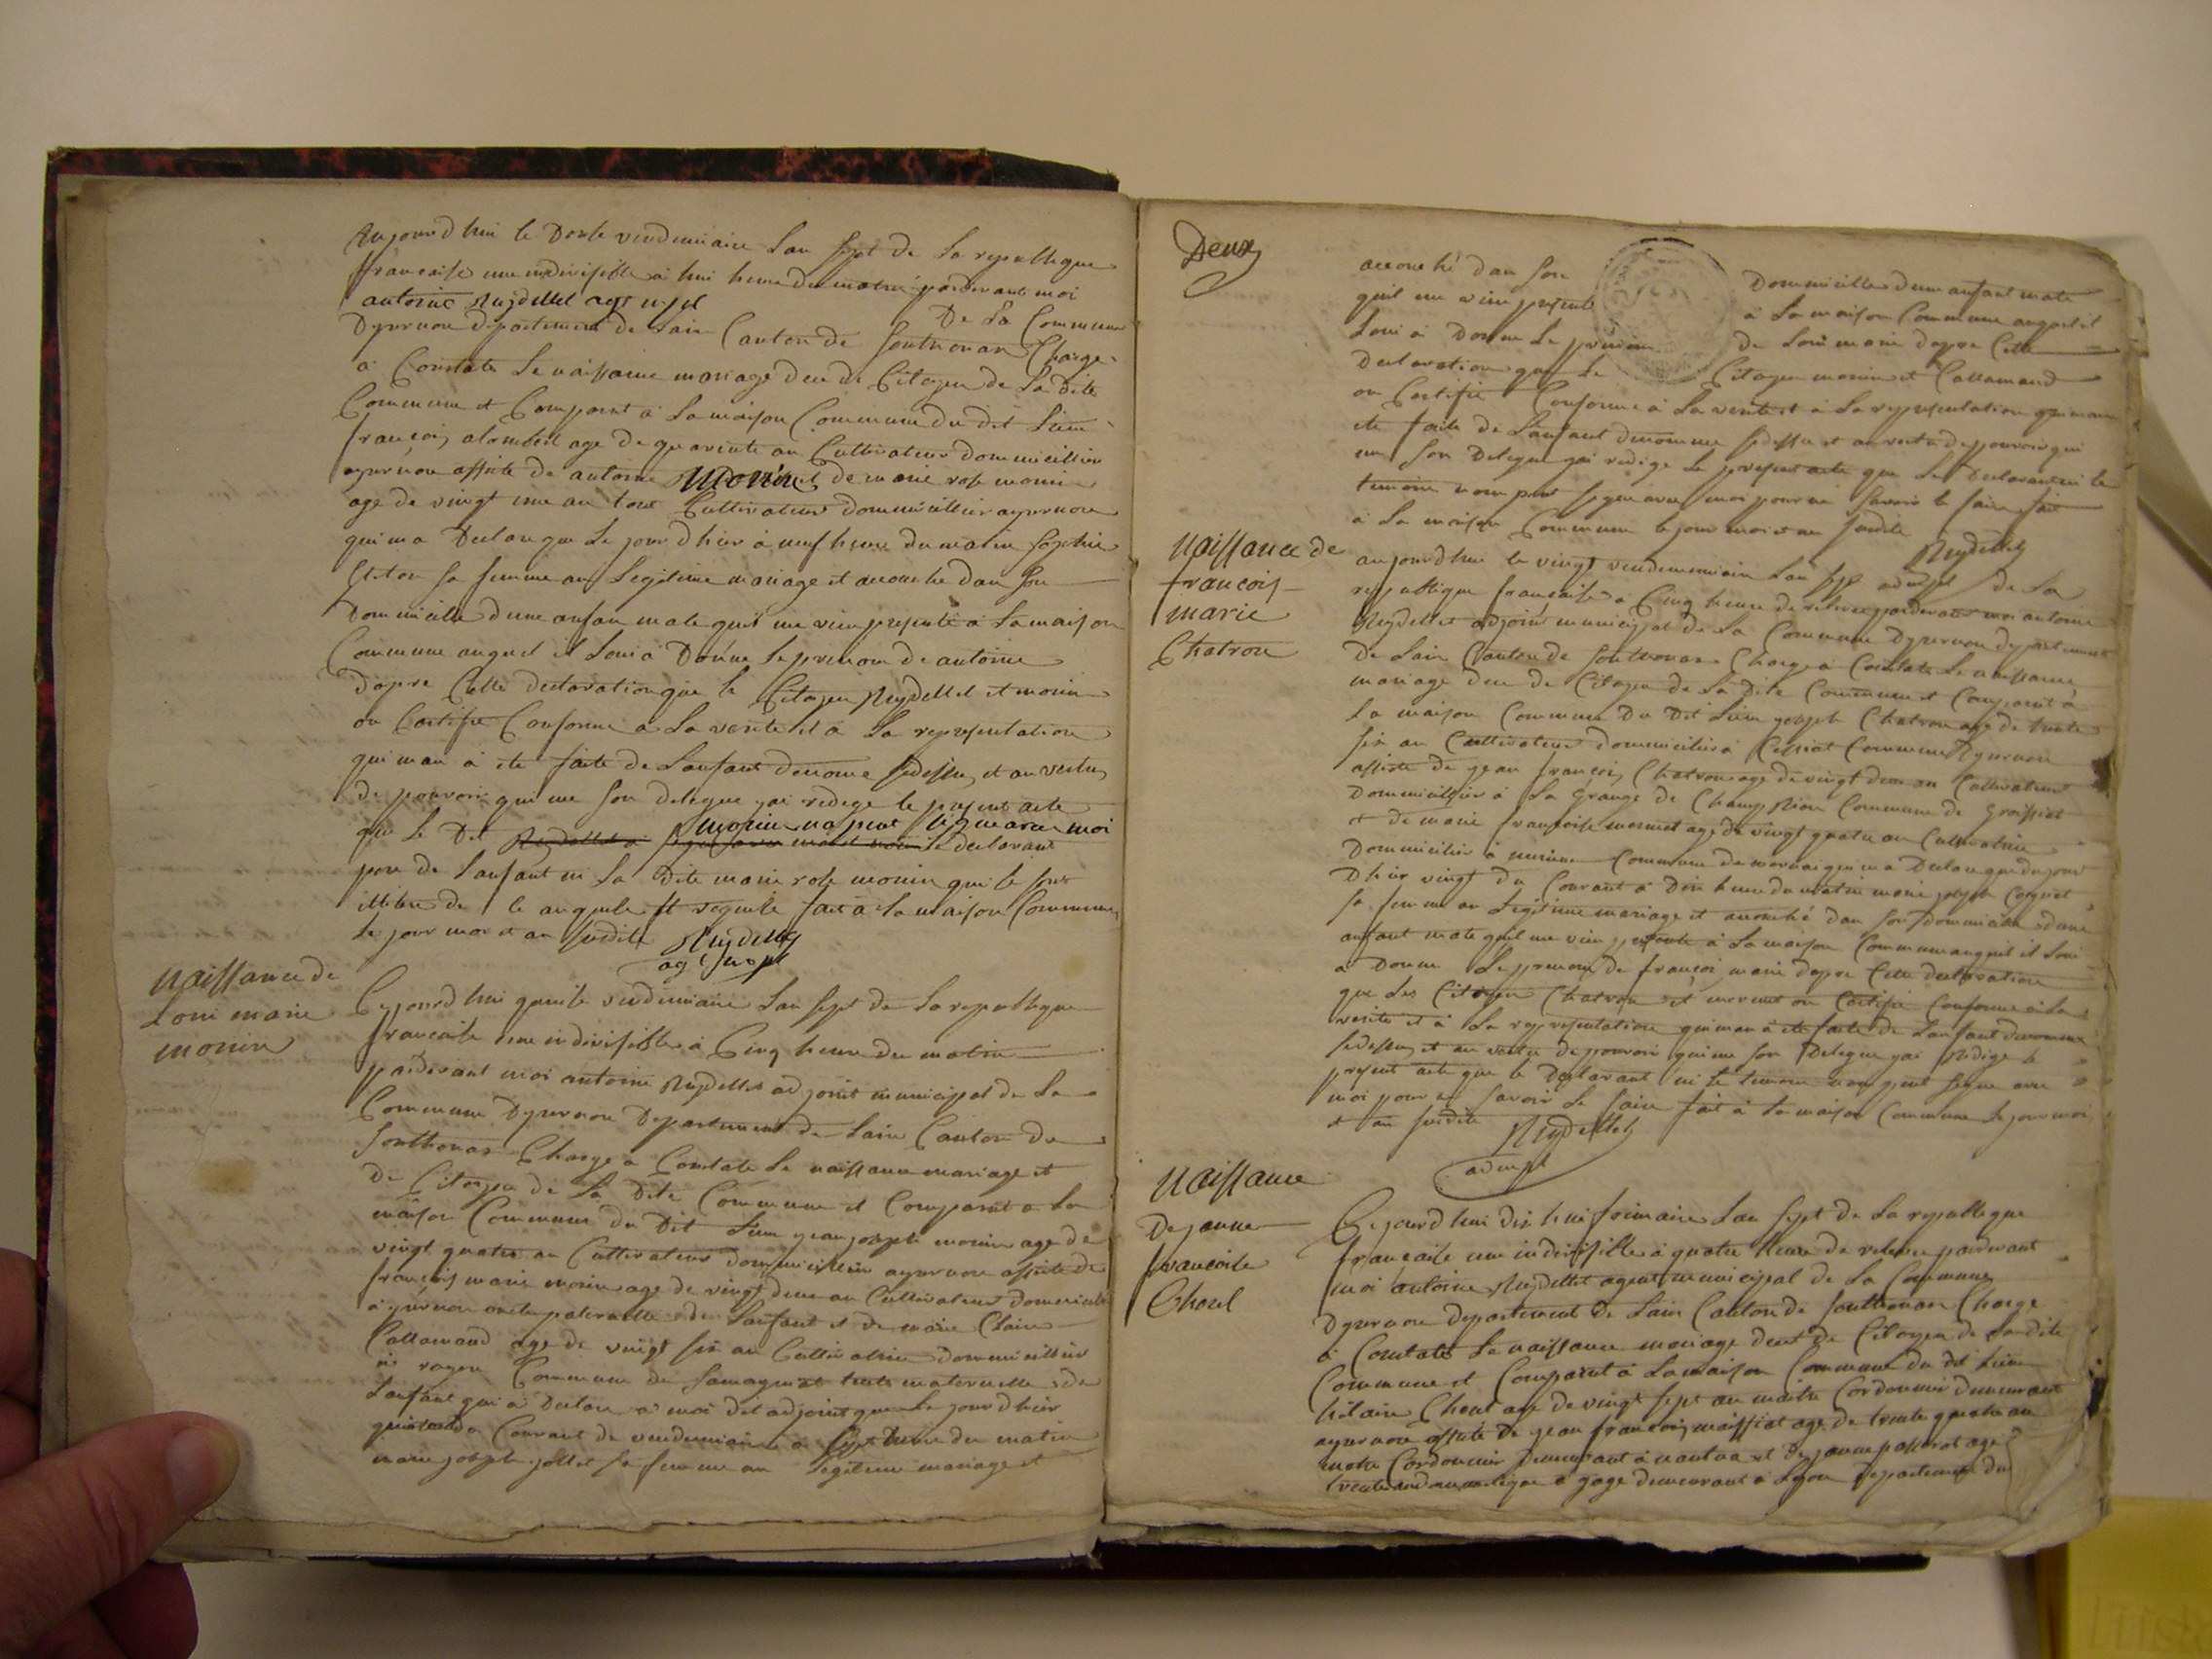 Aujourd hui le Doale vendemiaire Lan sept de la republique
francaise une indivisible à hui heure du matin pardevant moi
antoine Reydellet agt mpl De La Commune
Dyzernon departement de Lain Canton de Sonthonax Charge
a Constate Le naissance mariage dece de Citoyen de La dite
Commune et Comparut a La maison Commune du dit Lieu
francois age de quarente an Cultivateur domicillier
ayzernon assiste de antoine Monin et de marie rose monin
age de vingt une an tout Cultivateur dommicillier ayzernore
qui ma Declare que Le jour dhier à neuf heure du matin Sophie
sa femme an Legitime mariage et acouche dan son
Dommicille dune anfan male quil me vien presente à La maison
Commune auquel il Loui à Donne Le prenom de antoine
dapre Cette declaration que le Citoyen Reydellet et monin
on Certifie Conforme a La verite et à La representation
qui man à ete faite de Lanfant denome sidessus et an vertu
de pouvoir qui me son delegue jai redege le present acte
que le Dit monin na peut signe avec moi
Le declarant
pere de Lanfant ni La dite marie rose monin qui le sont
illitere de le anquele et requele fait à La maison Commune
Le jour moi et an susdite Reydellet
agt mpl
Naissance de
Loui marie
monin
Cejourd hui quinle vendemiaire Lan sept de La republique
francaise une indivisible à Cinq heure du matin
pardevant moi antoine Reydellet adjoint municipal de La
Commune Dyzernon Departement de Lain Canton de
Sonthonax Charge a Constate Le naissance mariage et
de Citoyen de La Dite Commune et Comparut a La
maison Commune du Dit Lieu jean joseph monin age de
vingt quatre an Cultivateur dommicillier ayzernore assiste de
francois marie monin age de vingt deux an Cultivateur Domicille
a yzernon oncle paternelle de Lanfant et de marie Claire
Callamand age de vingt six an Cultivatrice dommicillier
Commune de Samognat tante maternelle de
Lanfant qui à Declare à moi dit adjoint que Le jour dhier
Courant de vendemiaire à sept heure du matin
marie joseph jollet sa femme an Legitime mariage et
Deux
acouché dan son Dommicille dune anfant male
quil me vien presente à La maison Commune auquel il
Loui à Donne Le prenom de Loui marie dapre Cette
Declaration que Le Citoyen monin et Callamand
on Certifie Conforme à La verite et à La representation qui man
ete faite de Lanfant denomme sidessu et an vertu de pouvoir qui
me son Delegue jai redige Le present acte que Le Declarant ni le
temoin non peut signe avec moi pour ne savoir le faire fait
à La maison Commune le jour moi et an susdite
Reydellet
Naissance de
francois
marie
Chatron
aujourdhui le vingt vendemmiaire Lan sept de La
republique francaise à Cinq heure de relevee pardevant moi antoine
Reydellet adjoint municipal de La Commune Dyzernon departement
de Lain Canton de Sonthonax Charge a Constate Le naissance
mariage dece de Citoyen de La dite Commune et Comparut à
La maison Commune Du Dit Lieu joseph Chatron age de trente
six an Cultivateur dommicilier à Cessiat Commune Dyzernon
assiste de jean francois Chatron age de vingt deux an Cultivateur
Dommicillier à La Grange de Commune de Groissiat
et de marie francoise mermet age de vingt quatre an Cultivatrice
Dommicilier à Commune de mornai qui ma Declare que du jour
Dhier vingt du Courant à Dix heure du matin marie joseph
sa femme an Legitime mariage et acouché dan son dommicille dune
anfant male quil me vien presente à La maison Commune auquel il Loui
à Donne Le prenom de francoi marie dapre Cette declaration
que Les Citoyen Chatron et mermet on Certifie Conforme à La
verite et à La representation qui man à ete faite de Lanfant denomme
sidessu et an vertu de pouvoir qui me son Delegue jai redige le
present acte que le Declarant ni le temoin non peut signe avec
moi pour ne savoir Le faire fait à La maison Commune Le jour moi
et an susdite Reydellet
Naissance
De janne
francoise
Chorel
Cejourd hui dix hui frimaire Lan sept de La republique
francaise une indivisible à quatre heure de relevee pardevant
moi antoine Reydellet agent municipal de La Commune
Dyzernon departement de Lain Canton de Sonthonax Charge
à Constate Le naissance mariage decet de Citoyen de La dite
Commune et Comparut à La maison Commune du dit Lieu
hilaire age de vingt sept an maitre Cordonnier demeurant
ayzernore assiste de jean francois maissiat age de trente quatre an
Cordonnier demeurant à nantua et De janne age
à gage demeurant à Lyon departement du